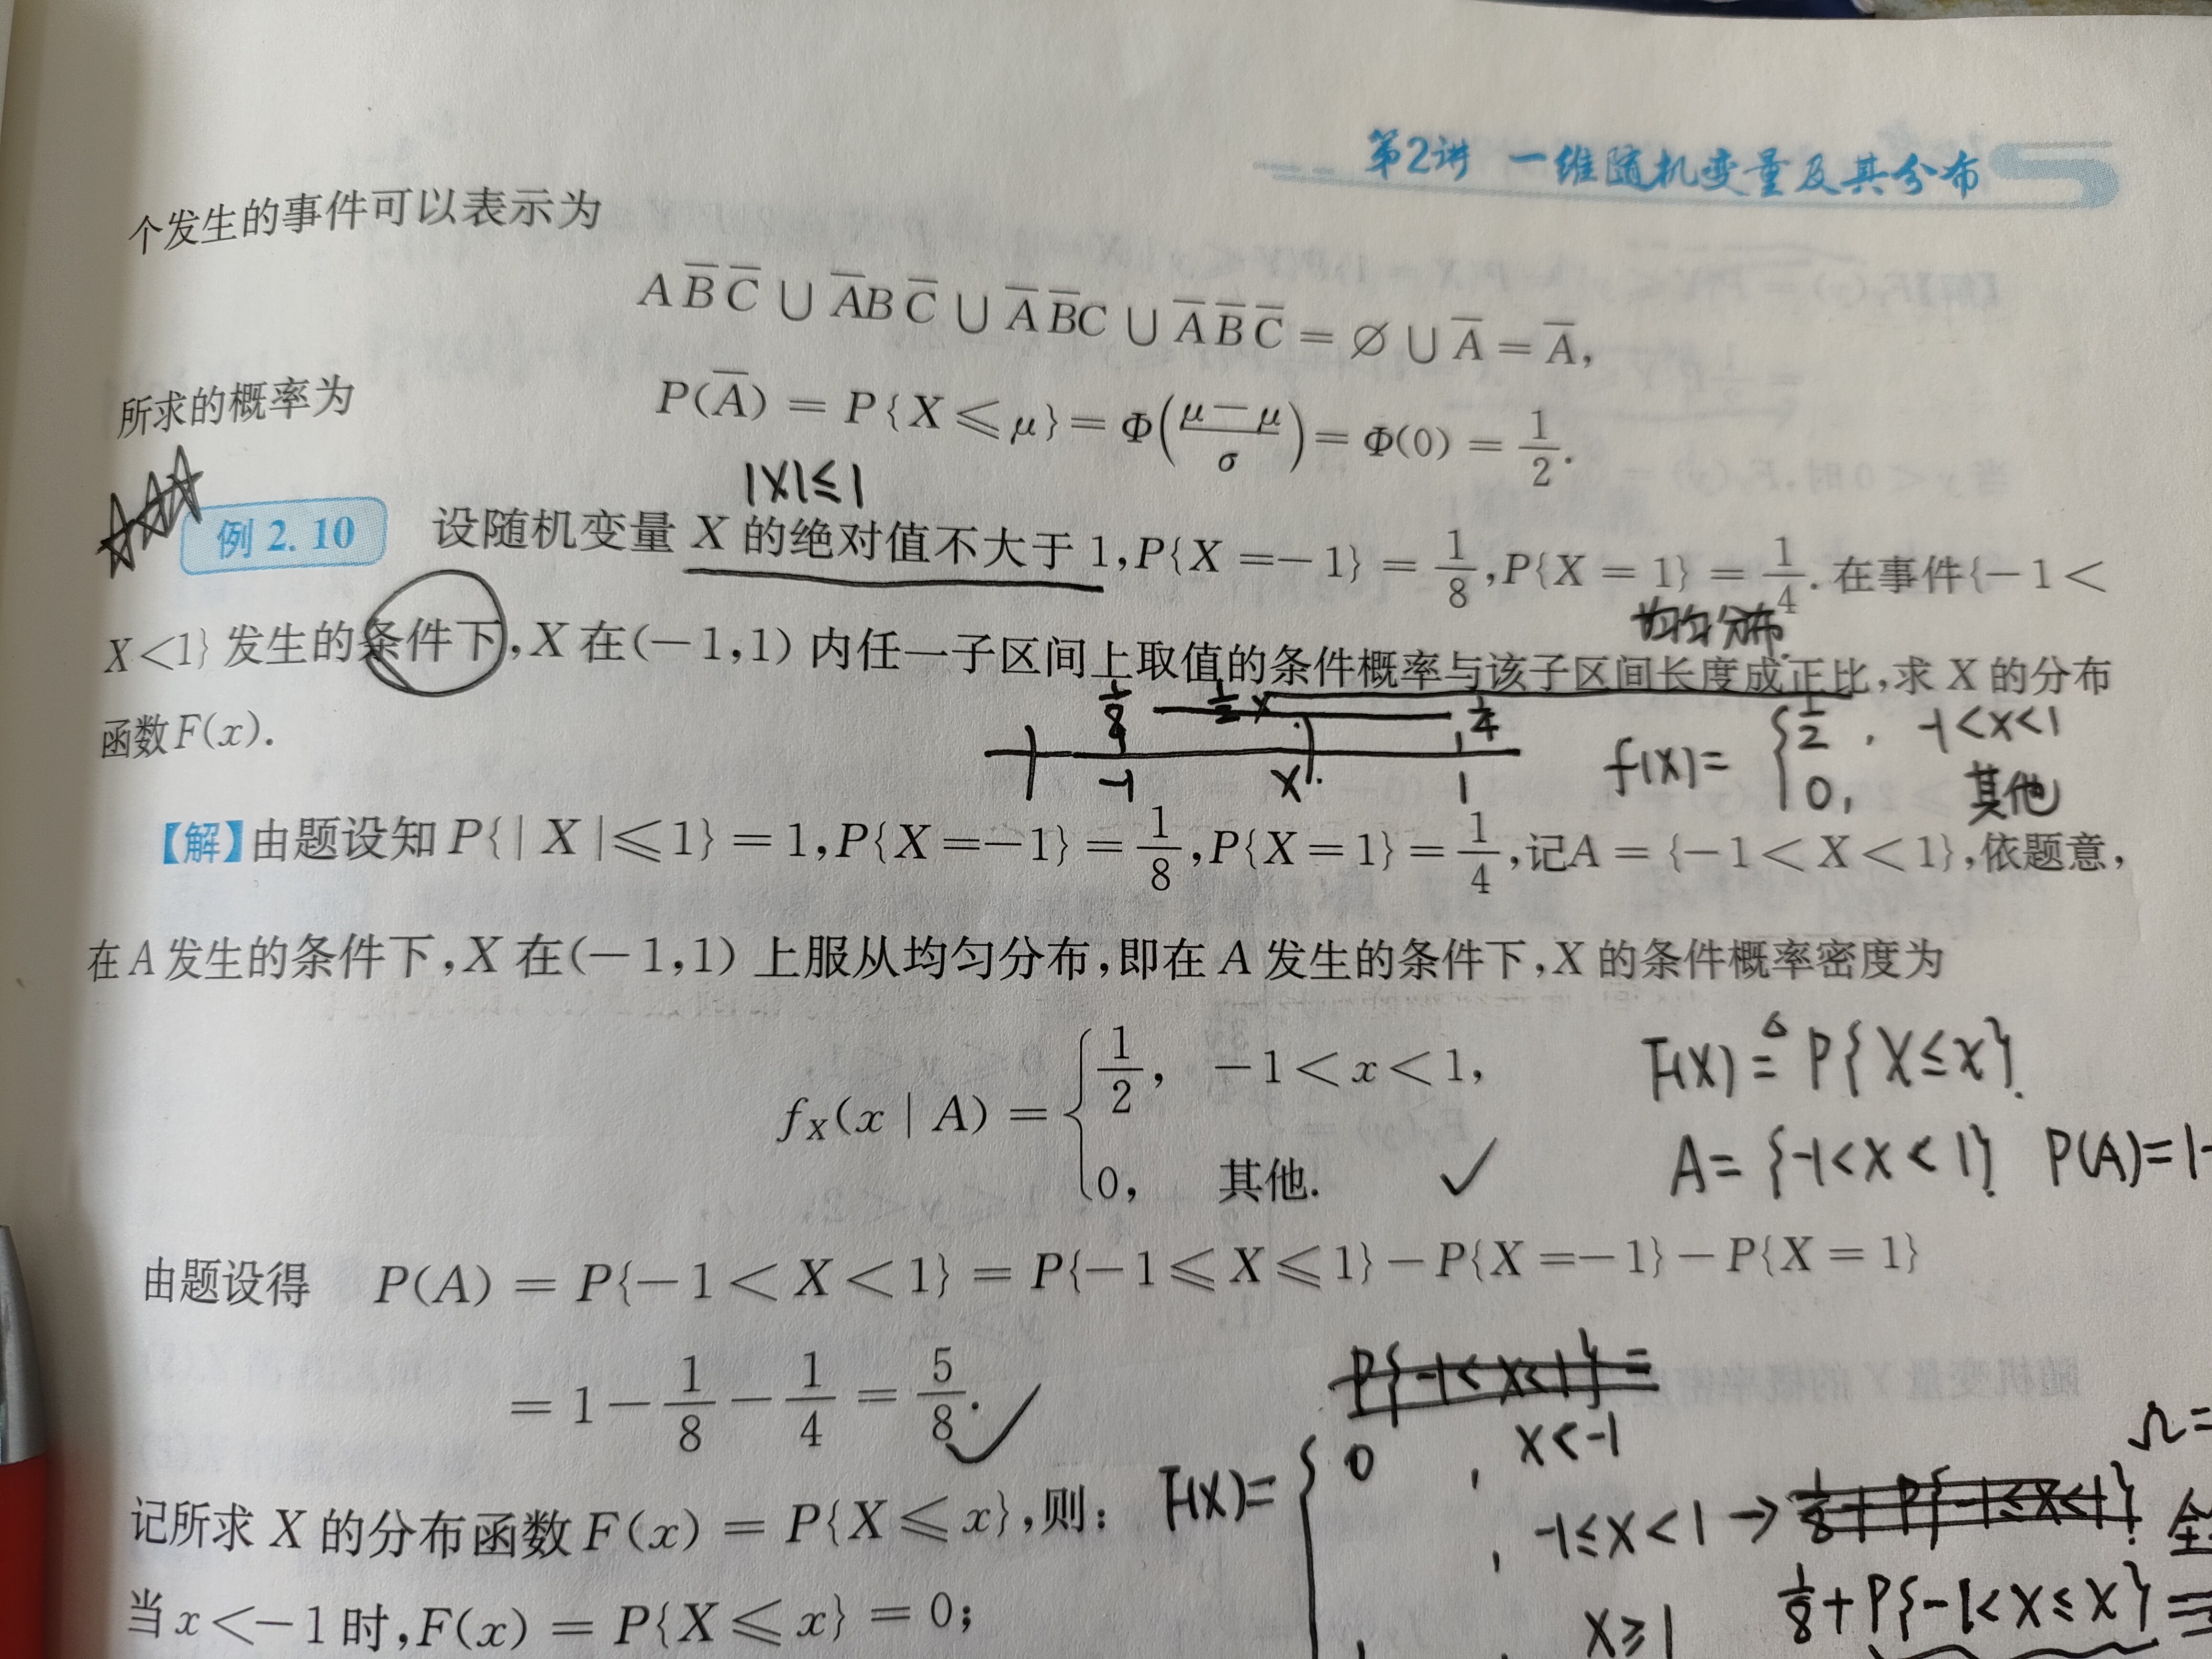 第2讲 一维随机变量及其分布
个发生的事件可以表示为
A B̅ C̅ ∪ A̅ B C̅ ∪ A̅ B̅ C ∪ A̅ B̅ C̅ = ∅ ∪ A̅ = A̅,
所求的概率为 P(A̅) = P{X ≤ μ} = Φ((μ−μ)/σ) = Φ(0) = 1/2.
|X|≤1
例 2.10 设随机变量 X 的绝对值不大于 1, P{X =−1} = 1/8, P{X = 1} = 1/4. 在事件{−1<
均匀分布
X<1} 发生的条件下, X 在(−1,1) 内任一子区间上取值的条件概率与该子区间长度成正比, 求 X 的分布
函数 F(x).
1/8 1/2 x 1/4
-1 x 1
f(x)= { 1/2, -1<x<1
0, 其他
【解】由题设知 P{| X |≤1} = 1, P{X =−1} = 1/8, P{X = 1} = 1/4, 记A = {−1 < X < 1}, 依题意,
在 A 发生的条件下, X 在(−1,1) 上服从均匀分布, 即在 A 发生的条件下, X 的条件概率密度为
f_X(x | A) = { 1/2, −1 < x < 1,
0, 其他.
F(x) ≜ P{X≤x}.
A= {-1<X<1} P(A)=1-
由题设得 P(A) = P{−1 < X < 1} = P{−1 ≤ X ≤ 1} − P{X =−1} − P{X = 1}
= 1 − 1/8 − 1/4 = 5/8.
P{-1<X<1} =
F(x)= { 0, x<-1
, -1≤x<1 → 1/8+P{-1≤X<1}
x≥1 1/8+P{-1<X≤x} =
Ω=
全
记所求 X 的分布函数 F(x) = P{X ≤ x}, 则:
当 x <−1 时, F(x) = P{X ≤ x} = 0;